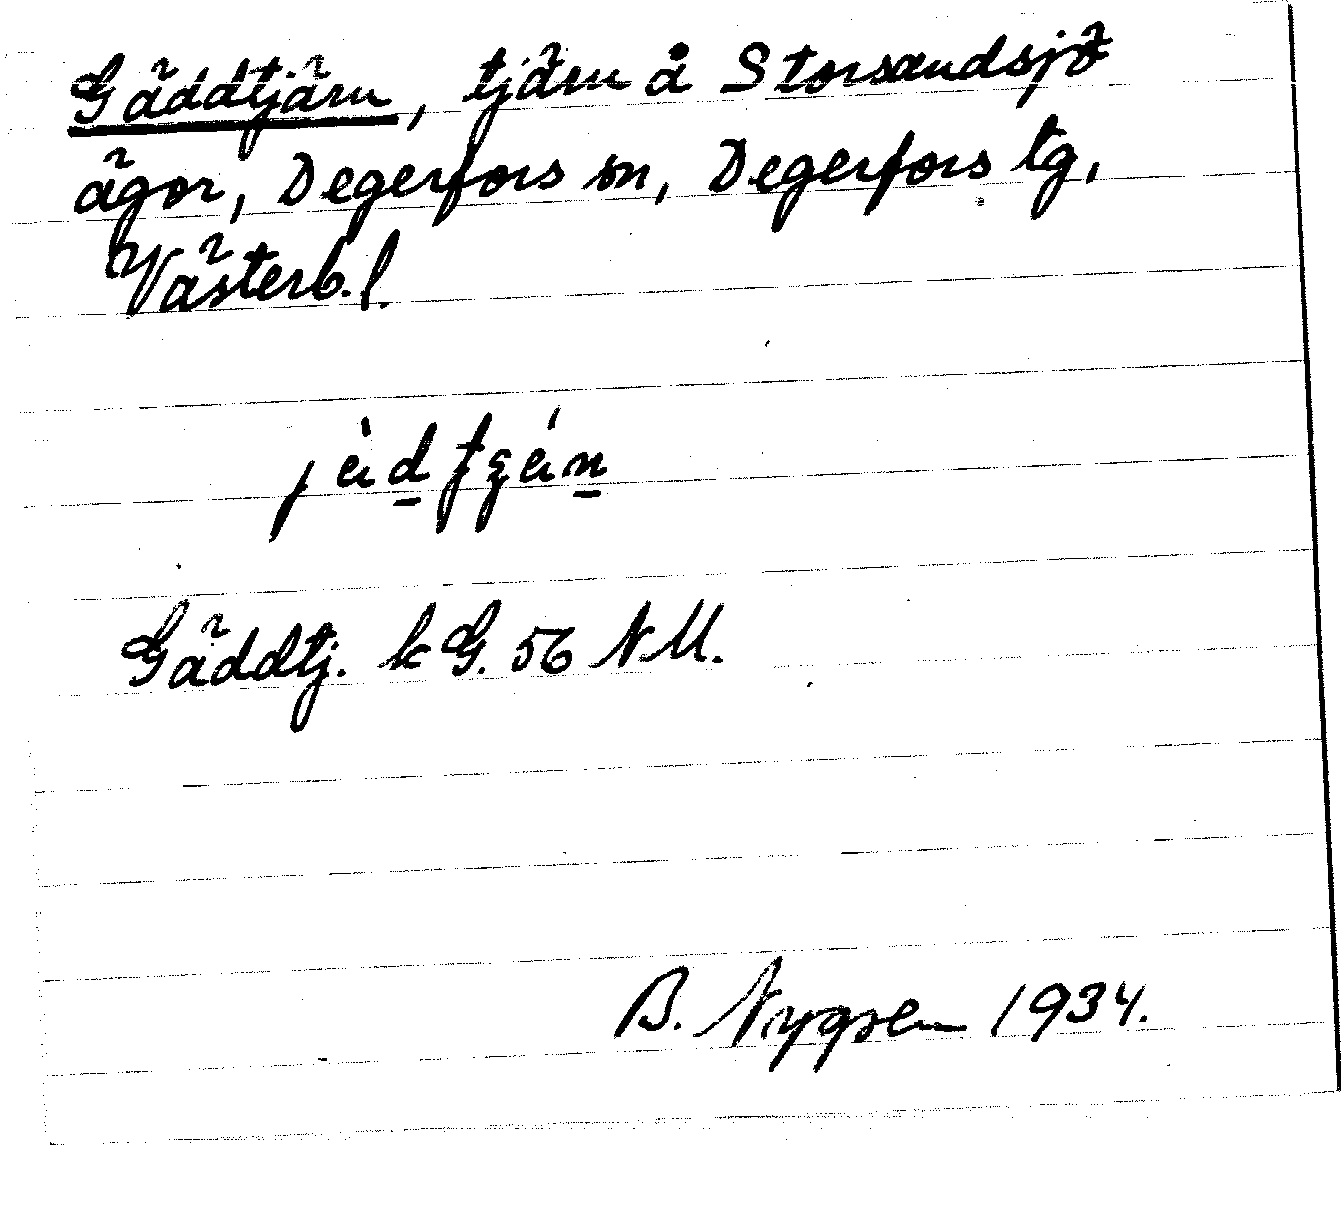 Gäddtjärn, tjärn å Storsandsjö
ägor, Degerfors sn, Degerfors tg,
Västerb. l.
Gäddtj. k G. 56 NM.
B. Nygren 1934.